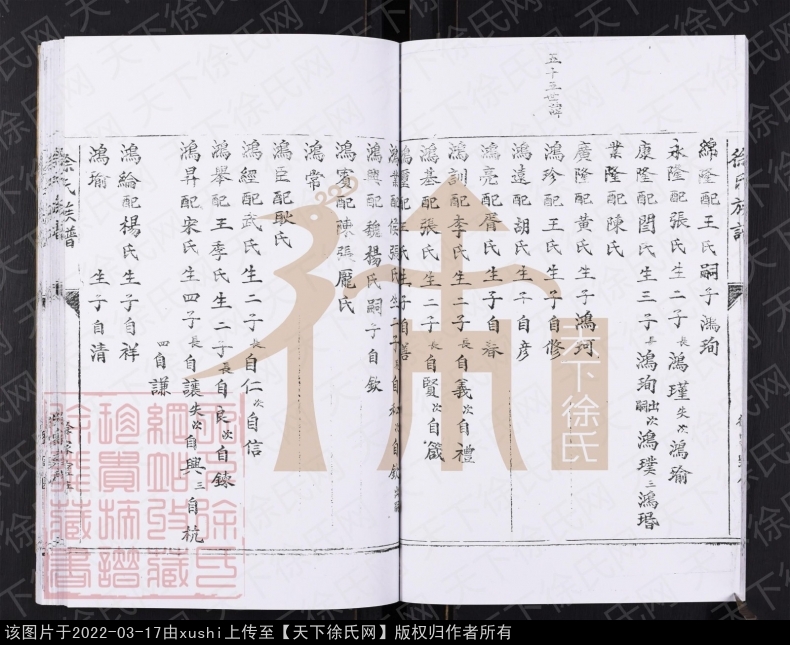 徐氏族譜
綿隆配王氏嗣子鴻珣
永隆配張氏生二子長鴻瑾失次鴻瑜
康隆配閻氏生三子長鴻珣出嗣次鴻璞三鴻瑉
業隆配陳氏
廣隆配黃氏生子鴻珂
五十五世諱
鴻珍配王氏生子自修
鴻遠配胡氏生子自彦
鴻亮配胥氏生子自春
鴻訓配李氏生二子長自義次自禮
鴻基配張氏生二子長自賢次自箴
鴻興配魏楊氏嗣子自欽
鴻賓配陳張龐氏
鴻常
鴻臣配耿氏
鴻經配武氏生二子長自仁次自信
鴻舉配王季氏生二子長自良次自錸
鴻昇配宋氏生四子長自讓失次自興三自杭
四自謙
鴻綸配楊氏生子自祥
鴻瑜 生子自清
徐氏族譜
天下徐氏
徐氏網站收藏珍貴族譜徐雁藏書
天下徐氏网
该图片于2022-03-17由xushi上传至【天下徐氏网】版权归作者所有